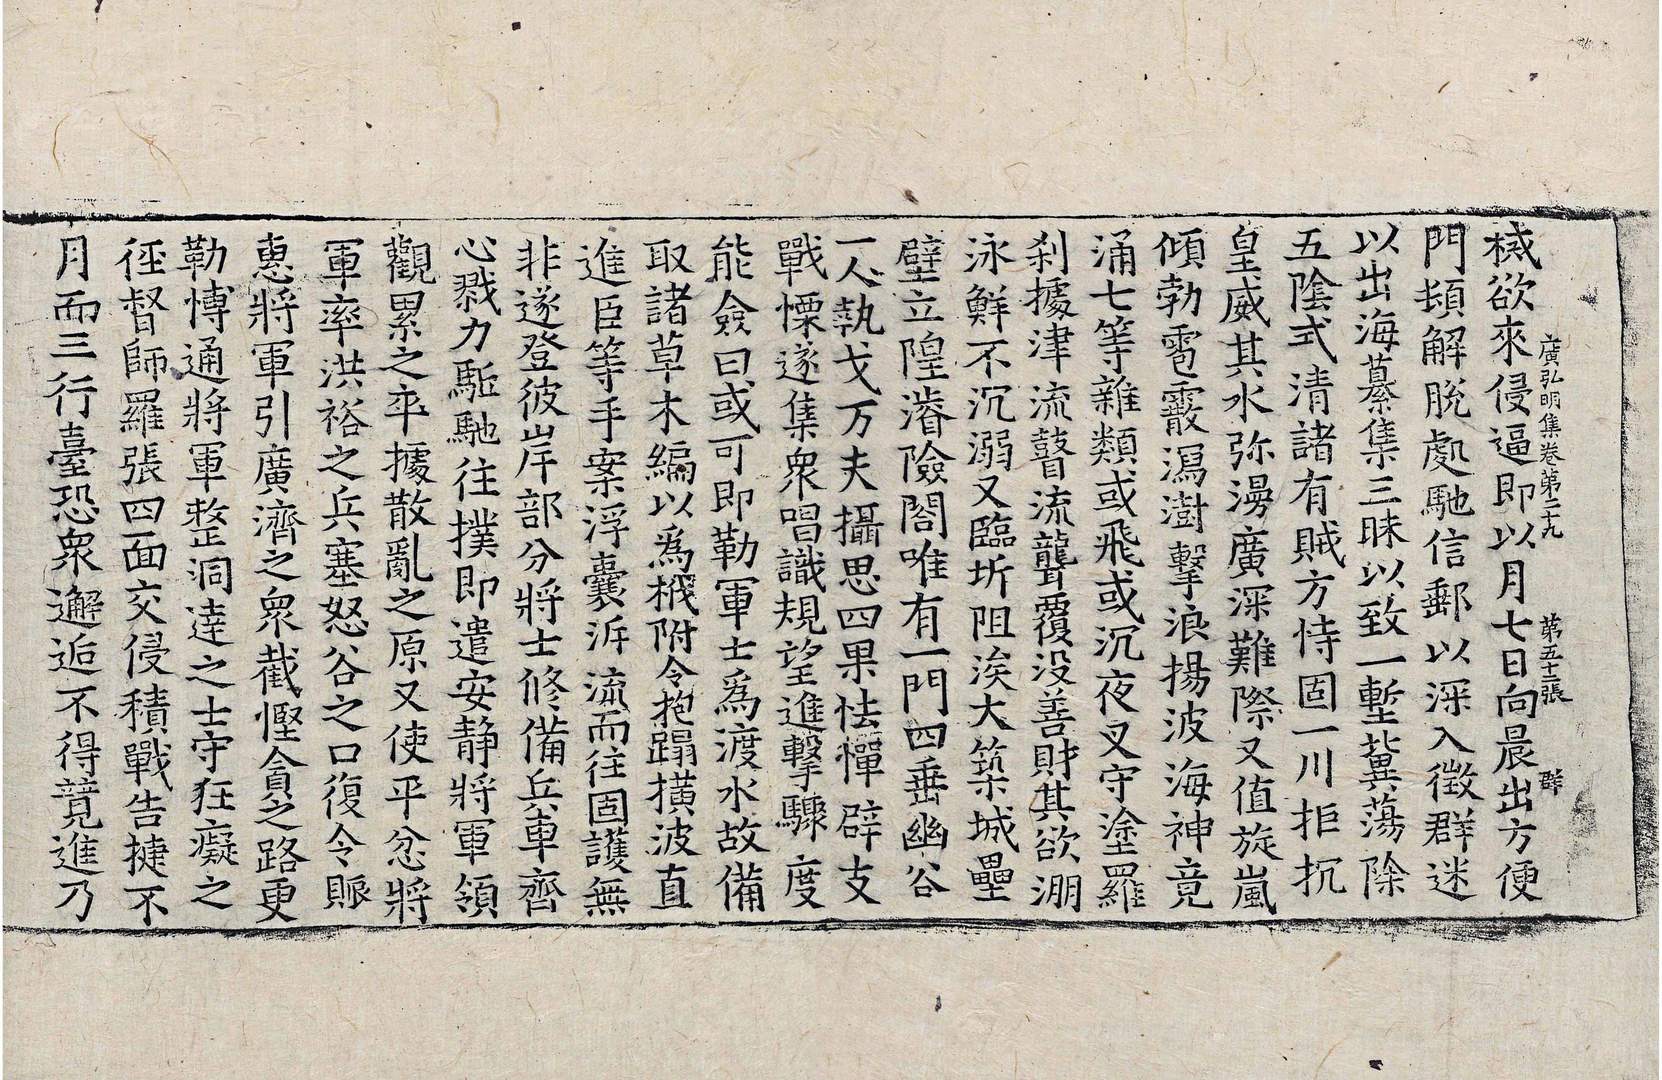 棫欲來侵逼即以月七日向晨出方便
廣弘明集卷第二十九　第五十二張　群
門頻解脫處馳信郵以深入徵群迷
以出海纂集三昧以致一塹冀蕩除
五陰式清諸有賊方恃固一川拒抗
皇威其水弥漫廣深難際又值旋嵐
傾勃雹霰瀉澍擊浪揚波海神竟
涌七等雜類或飛或沉夜叉守塗羅
刹據津流瞽流聾覆没善財其欲淜
泳鮮不沉溺又臨圻阻涘大築城壘
壁立隍濬險閤唯有一門四垂幽谷
一人執戈万夫攝思四果怯憚辟支
戰慄遂集衆唱識規望進擊驟度
能僉曰或可即勒軍士爲渡水故備
取諸草木編以爲栰附令抱蹋橫波直
進臣等手案浮囊泝流而往固護無
非遂登彼岸部分將士修備兵車齊
心戮力駈馳往撲即遣安静將軍領
觀累之卒據散亂之原又使平忿將
軍率洪裕之兵塞怒谷之口復令賑
惠將軍引廣濟之衆截慳貪之路更
勒愽通將軍整洞達之士守狂癡之
徑督師羅張四面交侵積戰告捷不
月而三行臺恐衆邂逅不得竟進乃